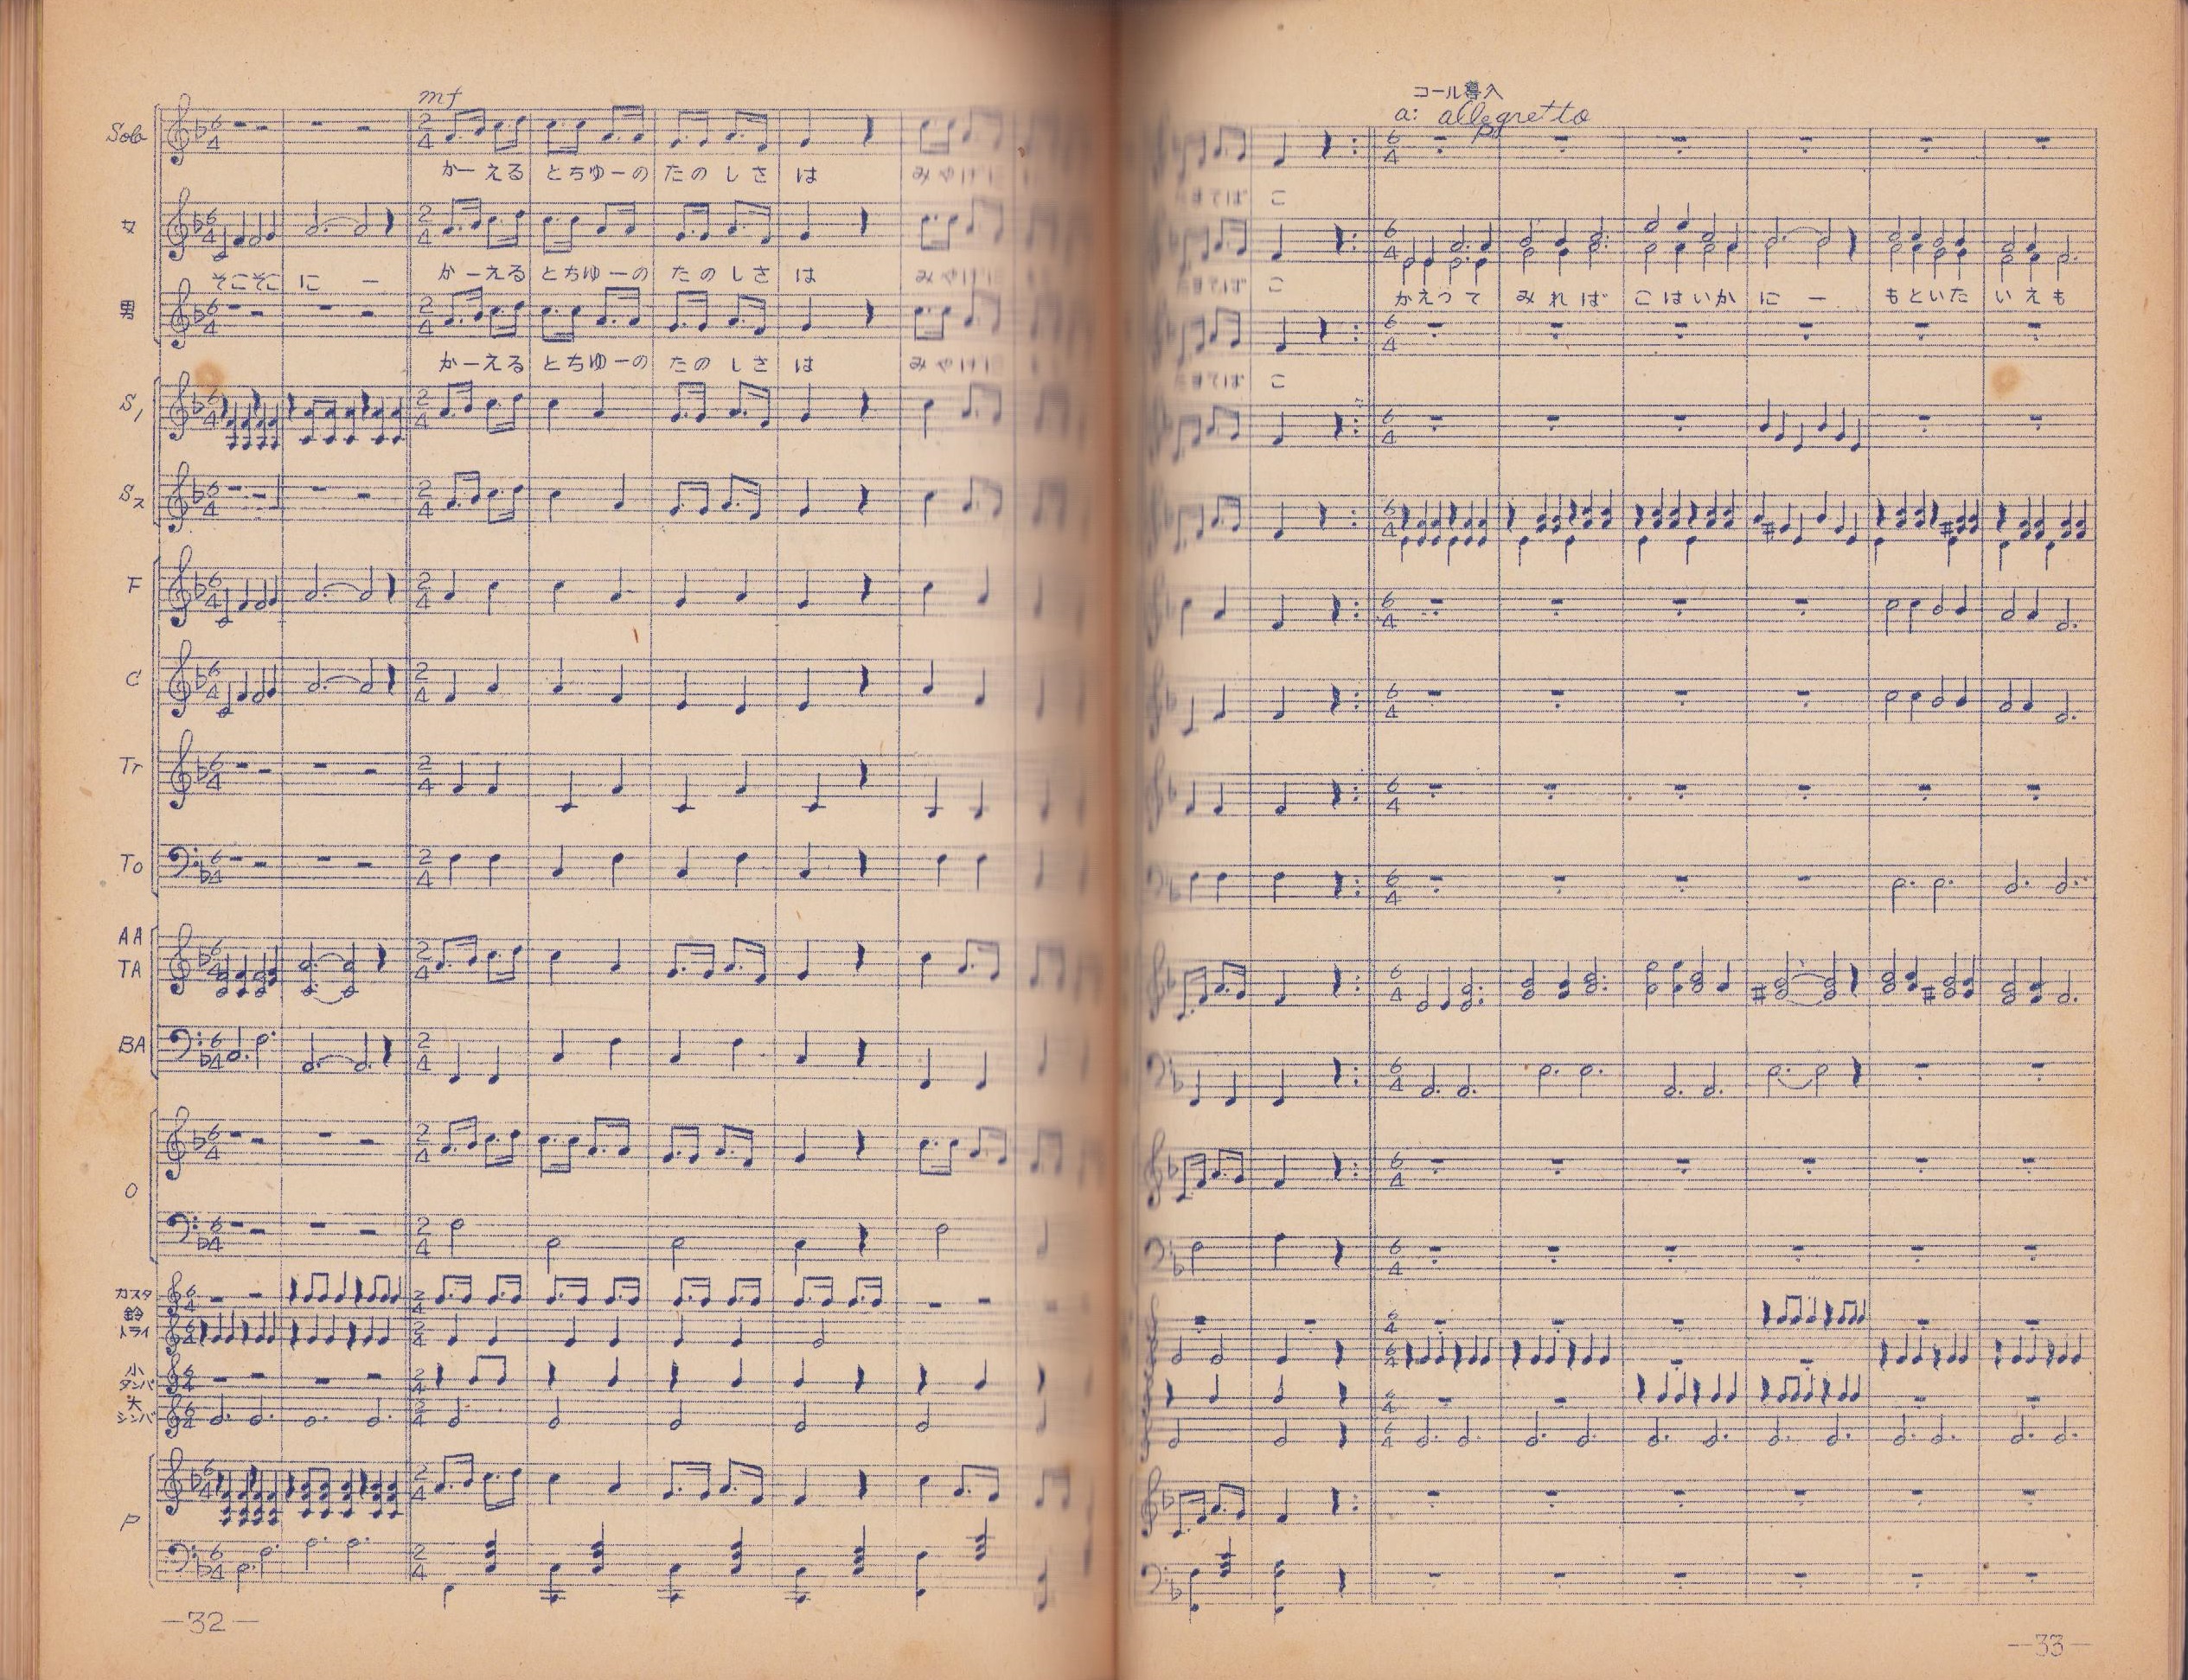 mf
Solo
かーえる とちゅーの たのしさ は みやげに
女
そこそこ に ー かーえる とちゆーの たのしさ は みやげに
男
かーえる とちゆーの たのしさ は みやげに
S1
S2
F
C
Tr
To
AA
TA
BA
O
カスタ
鈴
トライ
小
タンバ
大
シンバ
P
6
4
2
4
—32—
コール導入
a: allegretto
こ
こ
かえつて みれば こはいか に ー もといた いえも
こ
6
4
—33—